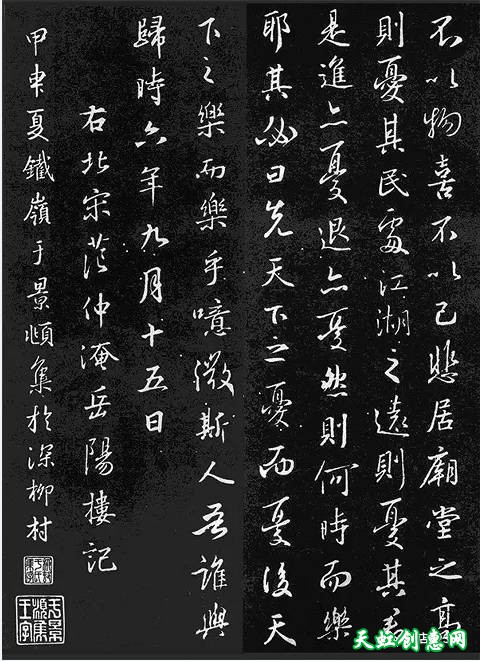 不以物喜不以己悲居廟堂之高
則憂其民處江湖之遠則憂其君
是進亦憂退亦憂然則何時而樂
耶其必曰先天下之憂而憂後天
下之樂而樂乎噫微斯人吾誰與
歸時六年九月十五日
右北宋范仲淹岳陽樓記
甲申夏鐵嶺于景頫集於深柳村
于景頫集王字
天虹创惠网